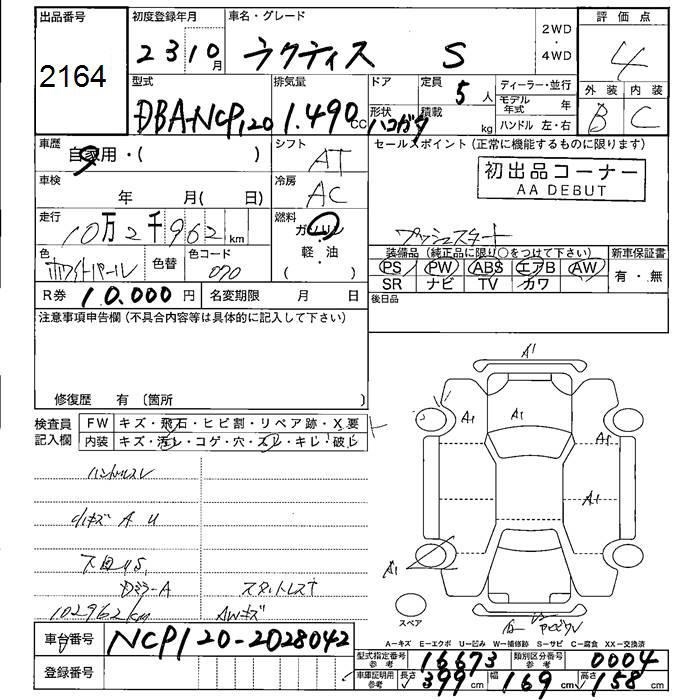 出品番号 初度登録年月 車名・グレード 2WD・4WD 評価点
2164 23 10月 ラクティス S 4
型式 排気量 ドア 定員 ディーラー・並行 外装 内装
DBA-NCP120 1.490cc 形状 ハコガタ 5人 積載 kg モデル年式 年 ハンドル 左・右 B C
車歴 自家用・( ) シフト AT セールスポイント(正常に機能するものに限ります)
初出品コーナー
AA DEBUT
車検 年 月( 日) 冷房 AC
走行 10万2千962km 燃料 ガソリン・軽・油 プッシュスタート
色 ホワイトパール 色替 色コード 070
装備品(純正品に限り○をつけて下さい) 新車保証書
PS PW ABS エアB AW 有・無
SR ナビ TV カワ
R券 10.000円 名変期限 月 日 後日品
注意事項申告欄(不具合内容等は具体的に記入して下さい)
修復歴 有(箇所 )
検査員記入欄 FW キズ・飛石・ヒビ割・リペア跡・X要
内装 キズ・汚レ・コゲ・穴・スレ・キレ・破レ
A1
A1 A1 A1
A1
A1
ハンドルスレ
小キズ A U
下回りS
Dミラ-A スタットレス
102962km AWキズ
スペア
A-キズ E-エクボ U-凹み W-補修跡 S-サビ C-腐食 XX-交換済
車台番号 NCP120-2028042
登録番号
型式指定番号 参考 16673 類別区分番号 参考 0004
車庫証明用 参考 長さ 399cm 幅 169cm 高さ 158cm